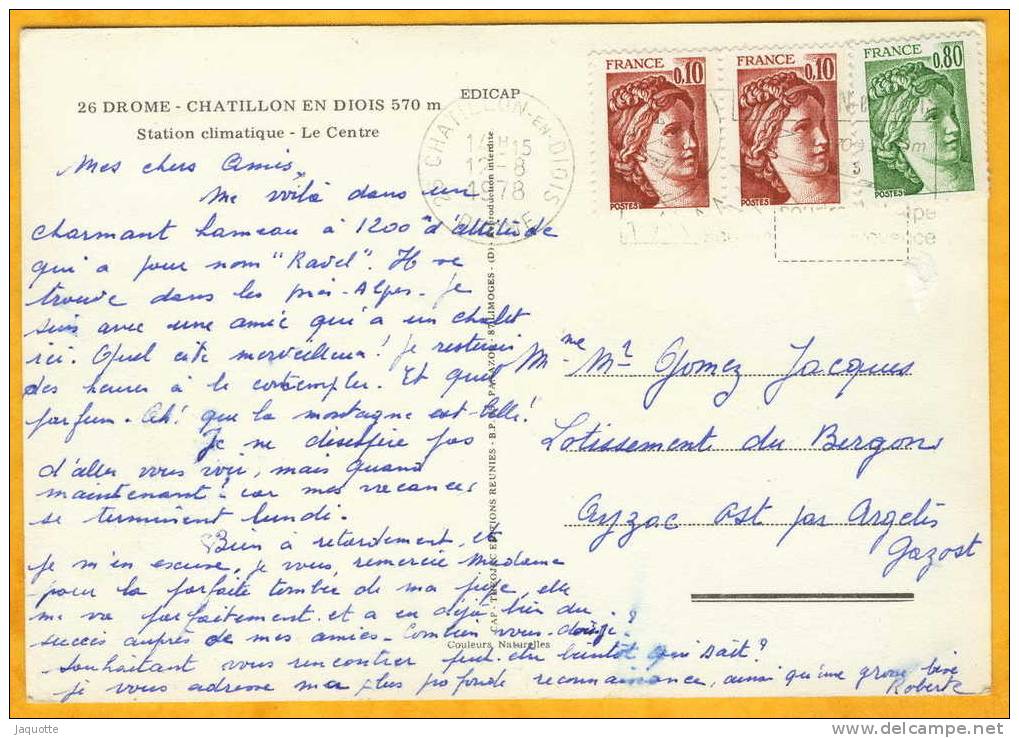 26 DROME - CHATILLON EN DIOIS 570 m
Station climatique - Le Centre
EDICAP
FRANCE
0,10
POSTES
FRANCE
0,10
POSTES
FRANCE
0,80
POSTES
26 CHATILLON-EN-DIOIS
15
12-8
1978
DROME
Mes chers Amis,
Me voilà dans un
charmant hameau à 1200 d'altitude
qui a pour nom "Ravel". Il se
trouve dans les pré-Alpes. Je
suis avec une amie qui a un chalet
ici. Quel site merveilleux! Je resterais
des heures à le contempler. Et quel
parfum. Ah! que la montagne est belle!
Je ne désespère pas
d'aller vous voir, mais quand
maintenant? car mes vacances
se terminent lundi.
Bien à retardement, et
je m'en excuse, je vous remercie Madame
pour la parfaite tombée de ma jupe, elle
me va parfaitement et a eu déjà bien du
succès auprès de mes amies. Combien vous dois-je?
Souhaitant vous rencontrer peut-être bientôt qui sait?
je vous adresse ma plus profonde reconnaissance, ainsi qu'une grosse bise
Roberte
CAP - THEOJAC EDITIONS REUNIES - B.P. 87 LIMOGES - (D) Reproduction interdite
Couleurs Naturelles
Mme Mr Gomez Jacques
Lotissement du Bergons
Ayzac Ost par Argelès
Gazost
jaquotte
www.delcampe.net